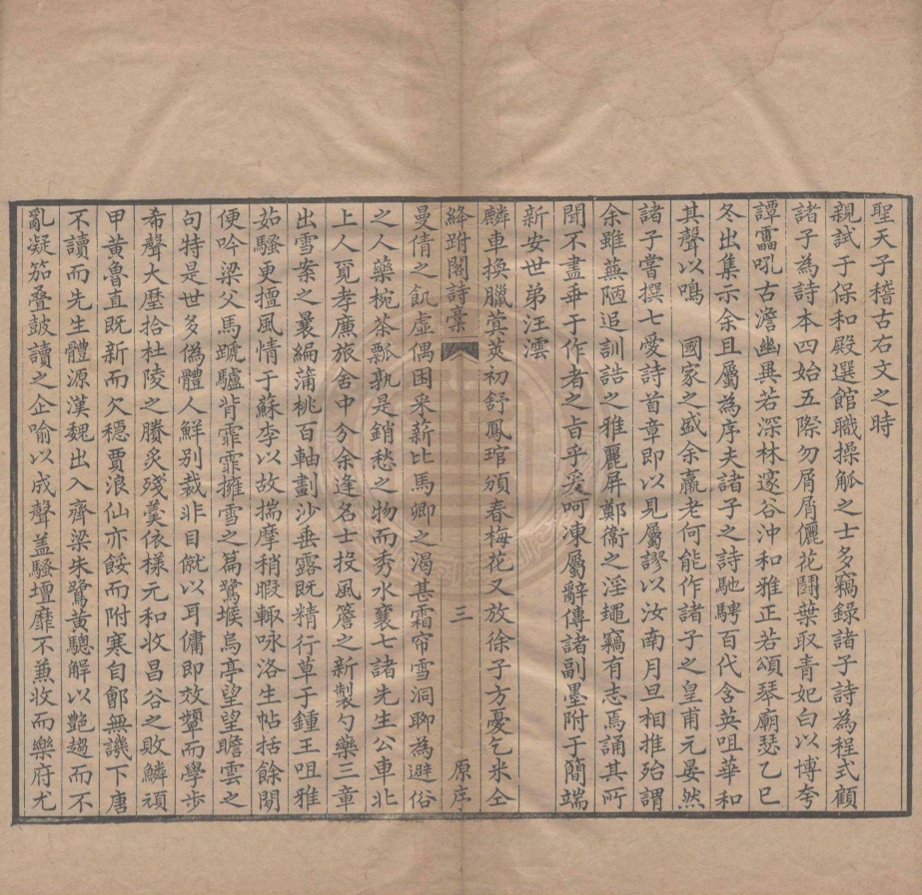 聖天子稽古右文之時
親試于保和殿選館職操觚之士多竊錄諸子詩為程式顧
諸子為詩本四始五際勿屑屑儷花鬪葉取青妃白以博夸
譚靁吼古澹幽異若深林邃谷沖和雅正若頌琴廟瑟乙巳
冬出集示余且屬為序夫諸子之詩馳騁百代含英咀華和
其聲以鳴 國家之盛余羸老何能作諸子之皇甫元晏然
諸子嘗撰七愛詩首章即以見屬謬以汝南月旦相推殆謂
余雖蕪陋追訓誥之雅麗屏鄭衞之淫䵷竊有志焉誦其所
聞不盡乖于作者之旨乎爰呵凍屬辭傳諸副墨附于簡端
新安世弟汪澐
麟車換臘蓂莢初舒鳳琯頒春梅花又放徐子方憂乞米仝
絳跗閣詩稾 三 原序
曼倩之飢虛偶困采薪比馬卿之渴甚霜帘雪洞聊為避俗
之人藥椀茶瓢孰是銷愁之物而秀水襄七諸先生公車北
上人覓孝廉旅舍中分余逢名士投風簷之新製勺藥三章
出雪案之曩編蒲桃百軸劃沙垂露既精行草于鍾王咀雅
茹騷更擅風情于蘇李以故揣摩稍暇輙咏洛生帖括餘閑
便吟梁父馬蹏驢背霏霏擁雪之篇鷺堠烏亭望望瞻雲之
句特是世多偽體人鮮別裁非目僦以耳傭即效顰而學步
希聲大歷拾杜陵之賸炙殘羹依樣元和收昌谷之敗鱗頑
甲黃魯直既新而欠穩賈浪仙亦餒而附寒自鄶無譏下唐
不讀而先生體源漢魏出入齊梁朱鷺黃驄解以艷趨而不
亂凝笳疊鼓讀之企喻以成聲蓋騷壇靡不兼收而樂府尤